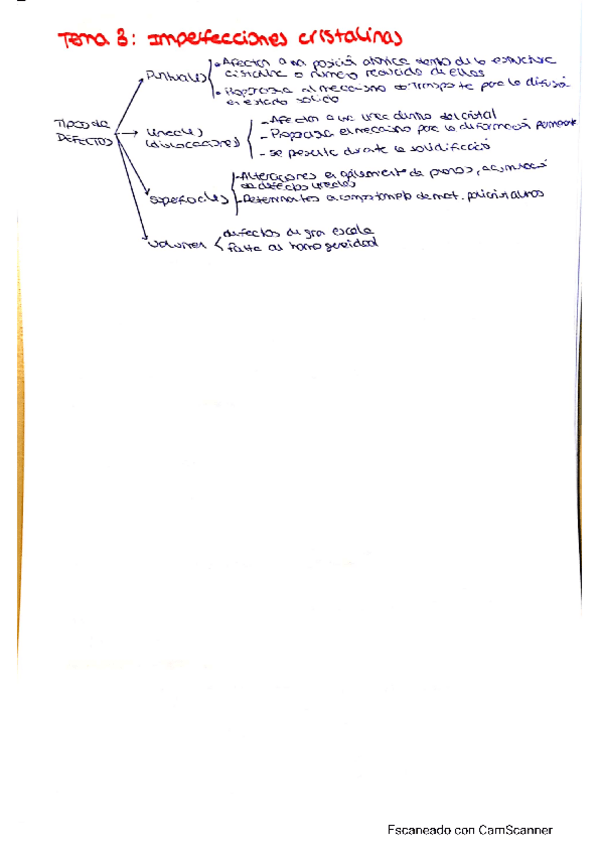 Tema 3: Imperfecciones cristalinas
Puntuales
• Afectan a una posición atómica dentro de la estructura
cristalina o número reducido de ellas
• Proporciona el mecanismo de transporte para la difusión
en estado sólido
TIPOS de
DEFECTOS
Lineales
(dislocaciones)
- Afectan a una línea dentro del cristal
- Proporciona el mecanismo para la deformación permanente
- se presenta durante la solidificació
superficiales
- Alteraciones en apilamiento de planos, acumulació
de defectos lineales
- Determinantes comportamiento de mat. policristalinos
volumen
defectos de gran escala
falta de homogeneidad
Escaneado con CamScanner